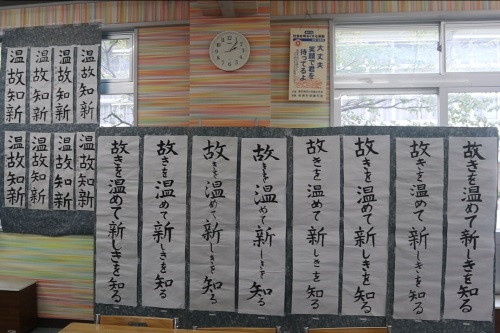 温故知新
温故知新
温故知新
温故知新
温故知新
温故知新
温故知新
温故知新
大丈夫
笑顔で君を
待ってるよ
故きを温めて新しきを知る
故きを温めて新しきを知る
故きを温めて新しきを知る
故きを温めて新しきを知る
故きを温めて新しきを知る
故きを温めて新しきを知る
故きを温めて新しきを知る
故きを温めて新しきを知る